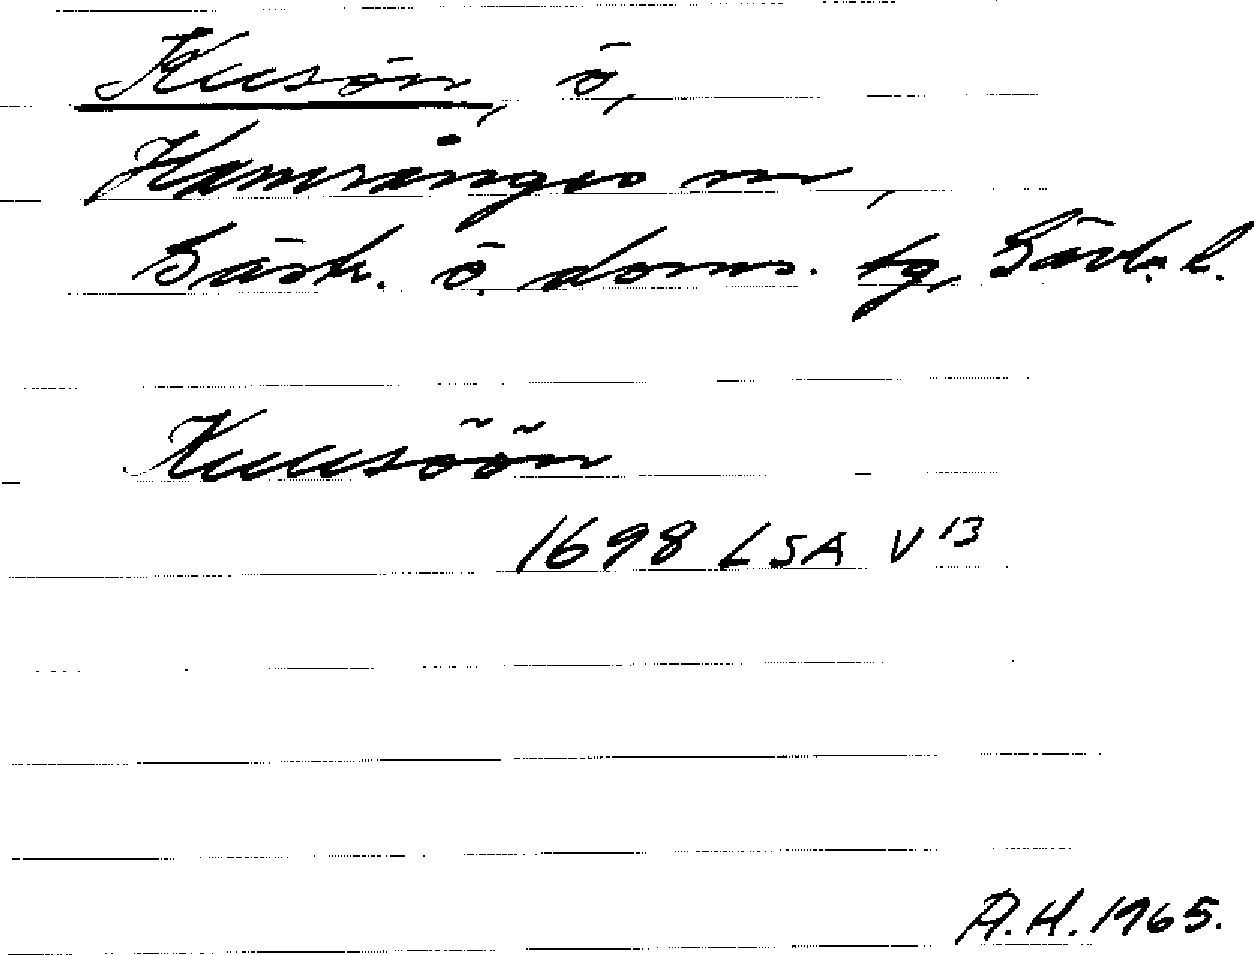 Kusön, ö,
Hamrånge sn,
Gästr. ö. doms. tg, Gävleb. l.
Kuusöön
1698 LSA V 13
A.H. 1965.